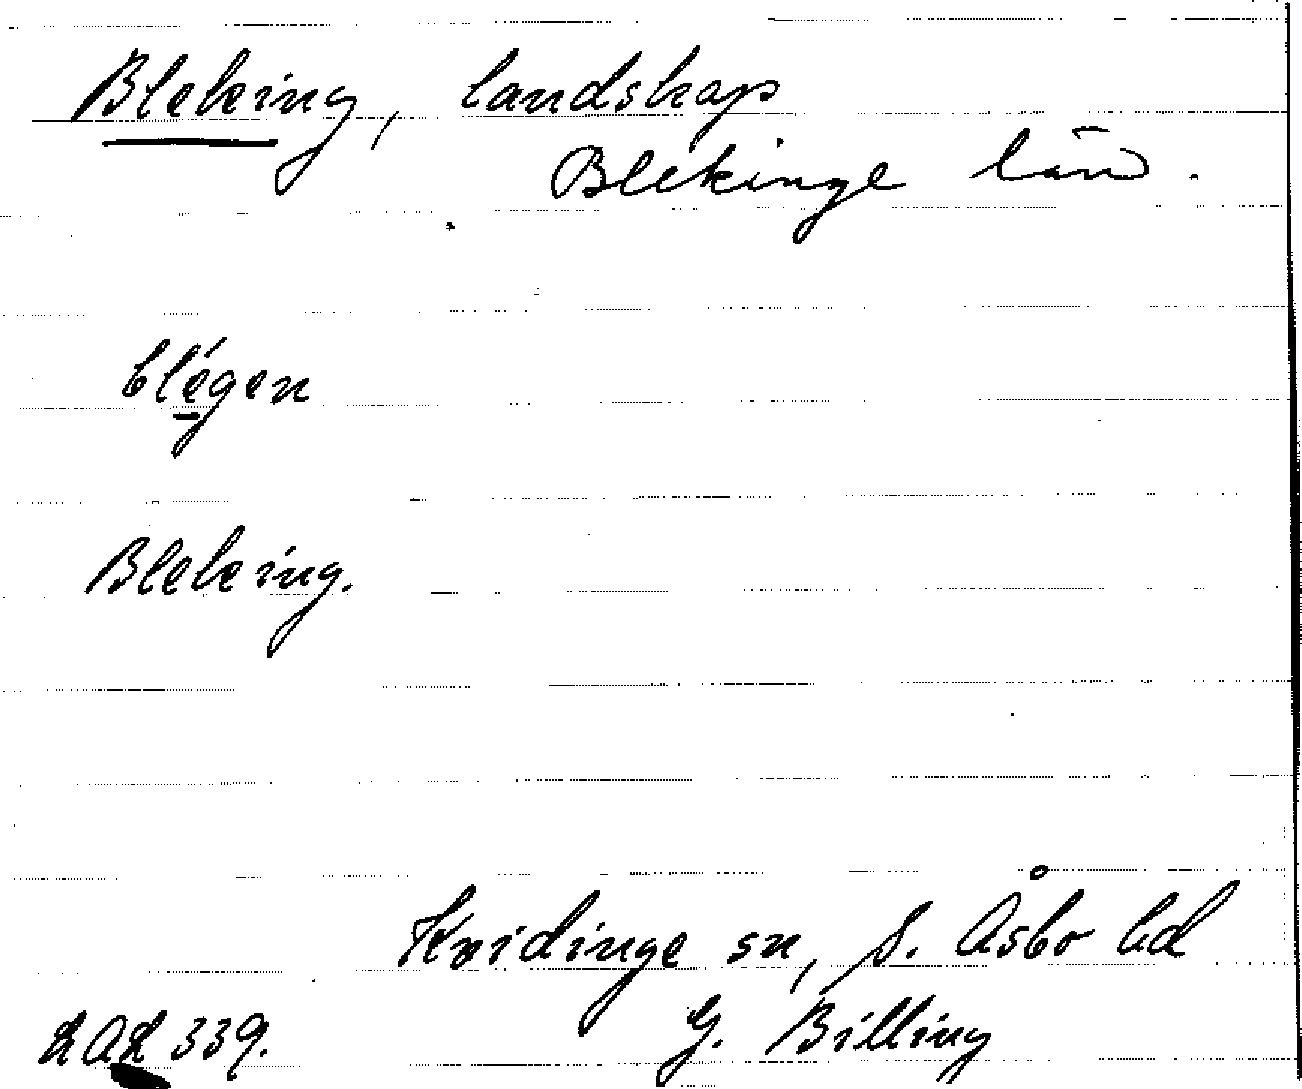 Bleking, landskap
Blekinge län.
blégen
Bleking.
Kvidinge sn, S. Åsbo hd
LAL 339. G. Billing